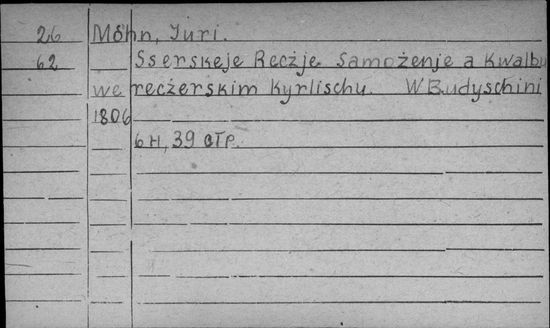 26 Möhn, Juri.
62 Sserskeje Reczje Samożenje a Kwalbu
we recżerskim Kyrlischu. W Budyschini
1806
6 н, 39 стр.